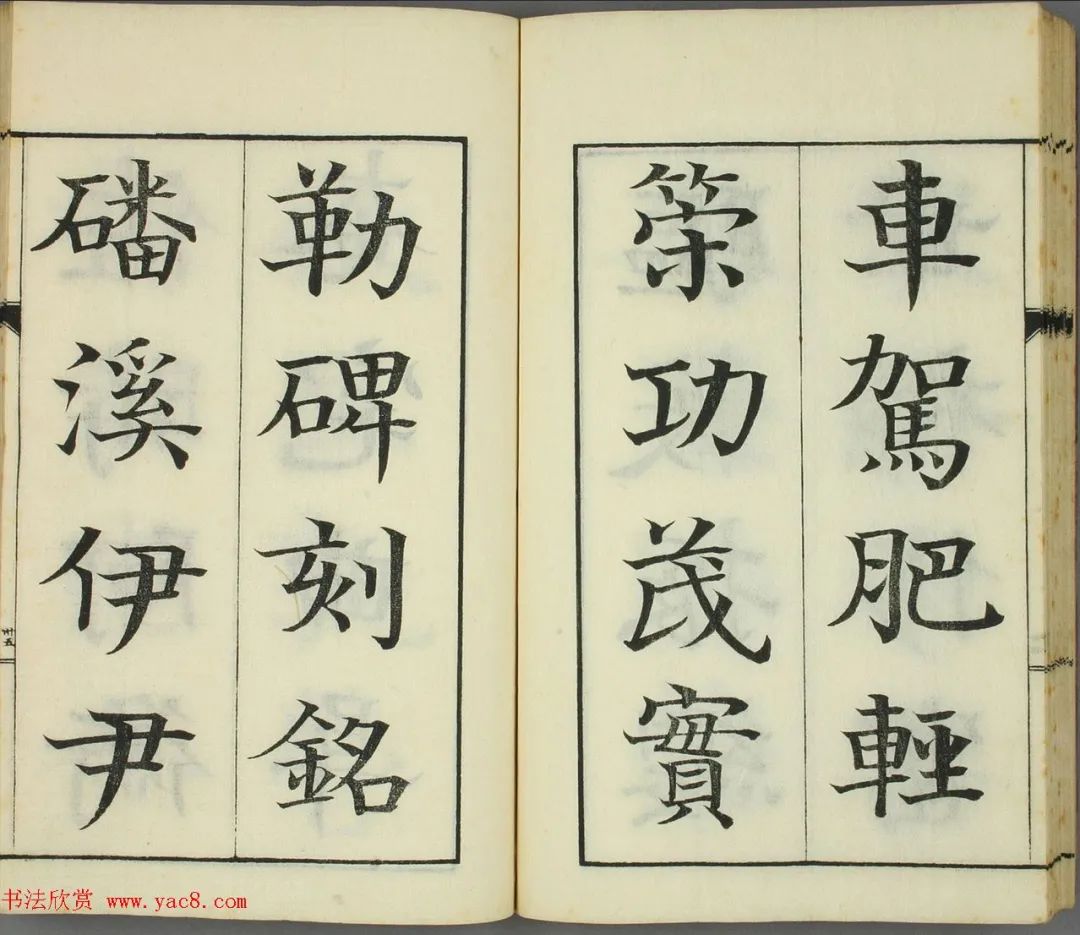 車駕肥輕
策功茂實
勒碑刻銘
磻溪伊尹
卅五
书法欣赏 www.yac8.com